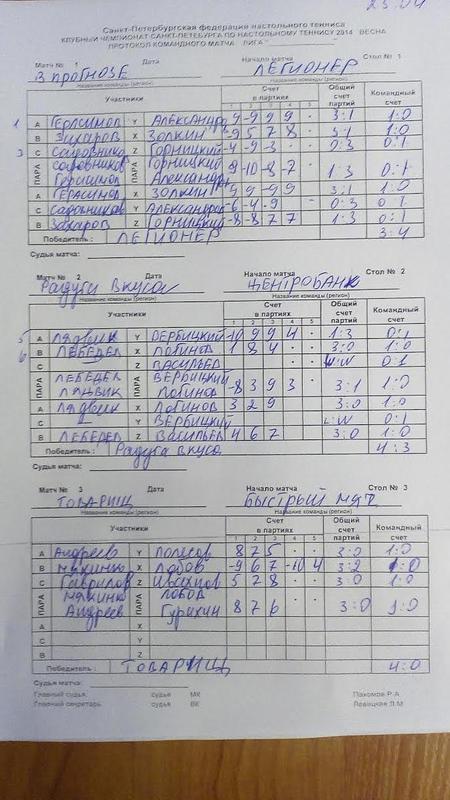 23.04
Санкт-Петербургская федерация настольного тенниса
КЛУБНЫЙ ЧЕМПИОНАТ САНКТ-ПЕТЕБУРГА ПО НАСТОЛЬНОМУ ТЕННИСУ 2014 ВЕСНА
ПРОТОКОЛ КОМАНДНОГО МАТЧА ЛИГА "
Матч № 1 Дата Начало матча Стол № 1
В ПРОГНОЗЕ ЛЕГИОНЕР
Название команды (регион) Название команды (регион)
Участники Счет в партиях Общий счет партий Командный счет
1 2 3 4 5
1 A Герасимов Y Александров 9 -9 9 9 · 3:1 1:0
B Захаров X Золкин -9 5 7 8 · 3:1 1:0
3 C Садовников Z Горницкий -4 -9 -3 · · 0:3 0:1
ПАРА Садовников Горницкий
Герасимов Александров 9 -10 -8 -7 · 1:3 0:1
A Герасимов X Золкин 9 9 -9 9 · 3:1 1:0
C Садовников Y Александров -6 -4 -9 · · 0:3 0:1
B Захаров Z Горницкий -8 -8 7 -7 · 1:3 0:1
Победитель : ЛЕГИОНЕР 3:4
Судья матча:
Матч № 2 Дата Начало матча Стол № 2
Радуга вкуса ЦЕНТРОБАНК
Название команды (регион) Название команды (регион)
Участники Счет в партиях Общий счет партий Командный счет
1 2 3 4 5
5 A Лядвик Y Вербицкий -10 9 9 4 · 1:3 0:1
6 B Лебедев X Логинов 1 8 4 · · 3:0 1:0
C Z Васильев · · 0:1
ПАРА Лебедев Вербицкий
Лядвик Логинов -8 3 9 3 · 3:1 1:0
A Лядвик X Логинов 3 2 9 3:0 1:0
C Y Вербицкий L:W 0:1
B Лебедев Z Васильев 4 6 7 3:0 1:0
Победитель : Радуга вкуса 4:3
Судья матча:
Матч № 3 Дата Начало матча Стол № 3
ТОВАРИЩ БЫСТРЫЙ МЯЧ
Название команды (регион) Название команды (регион)
Участники Счет в партиях Общий счет партий Командный счет
1 2 3 4 5
A Андреев Y Полисов 8 7 5 · · 3:0 1:0
B Мякинко X Лобов -9 6 7 -10 4 3:2 1:0
C Гаврилов Z 5 7 8 · · 3:0 1:0
ПАРА Мякинко Лобов
Андреев Гурихин 8 7 6 · · 3:0 1:0
A X
C Y
B Z
Победитель : ТОВАРИЩ 4:0
Судья матча:
Главный судья. судья МК Пахомов Р.А
Главный секретарь. судья ВК Левицкая Л.М